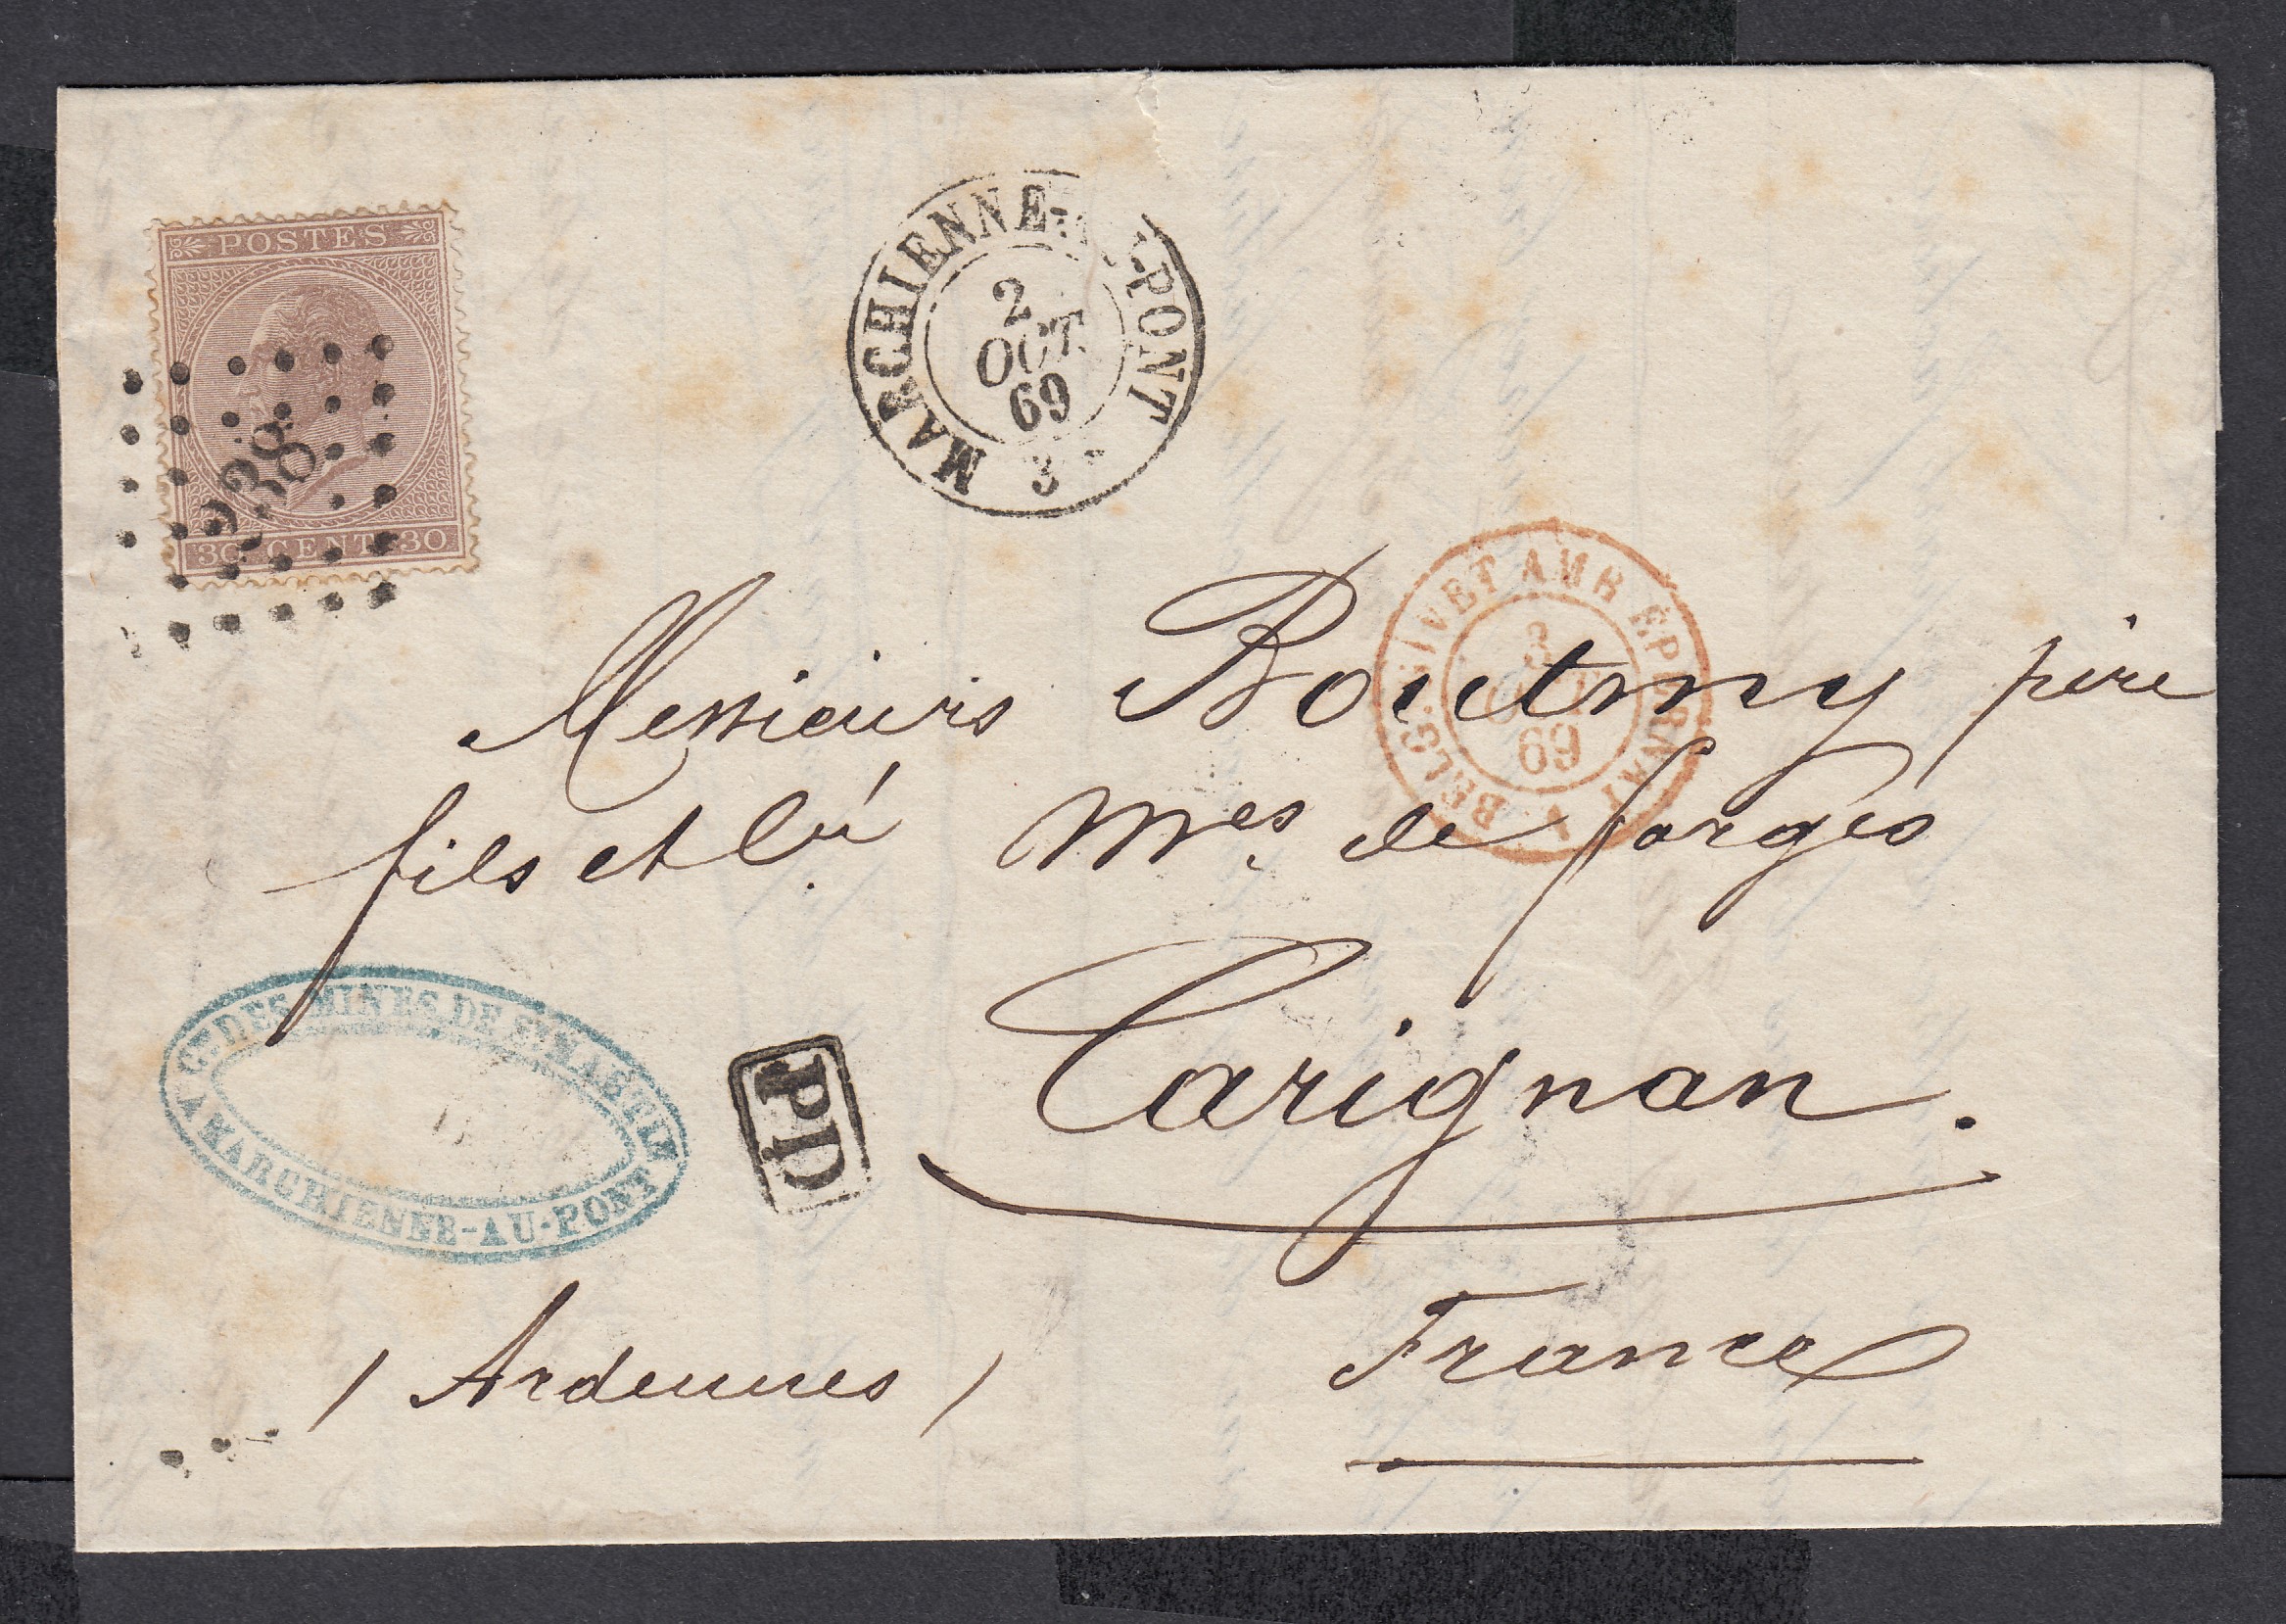 POSTES
238
30 CENT 30
MARCHIENNE- -PONT
2
OCT
69
3
BELG. GIVET AMB EPERNAY A
3
OCT
69
Messieurs Boutmy père
fils et Cie Mes. de forges
Carignan.
Cie DES MINES DE St MARTIN
A MARCHIENNE-AU-PONT
PD
(Ardennes)
France